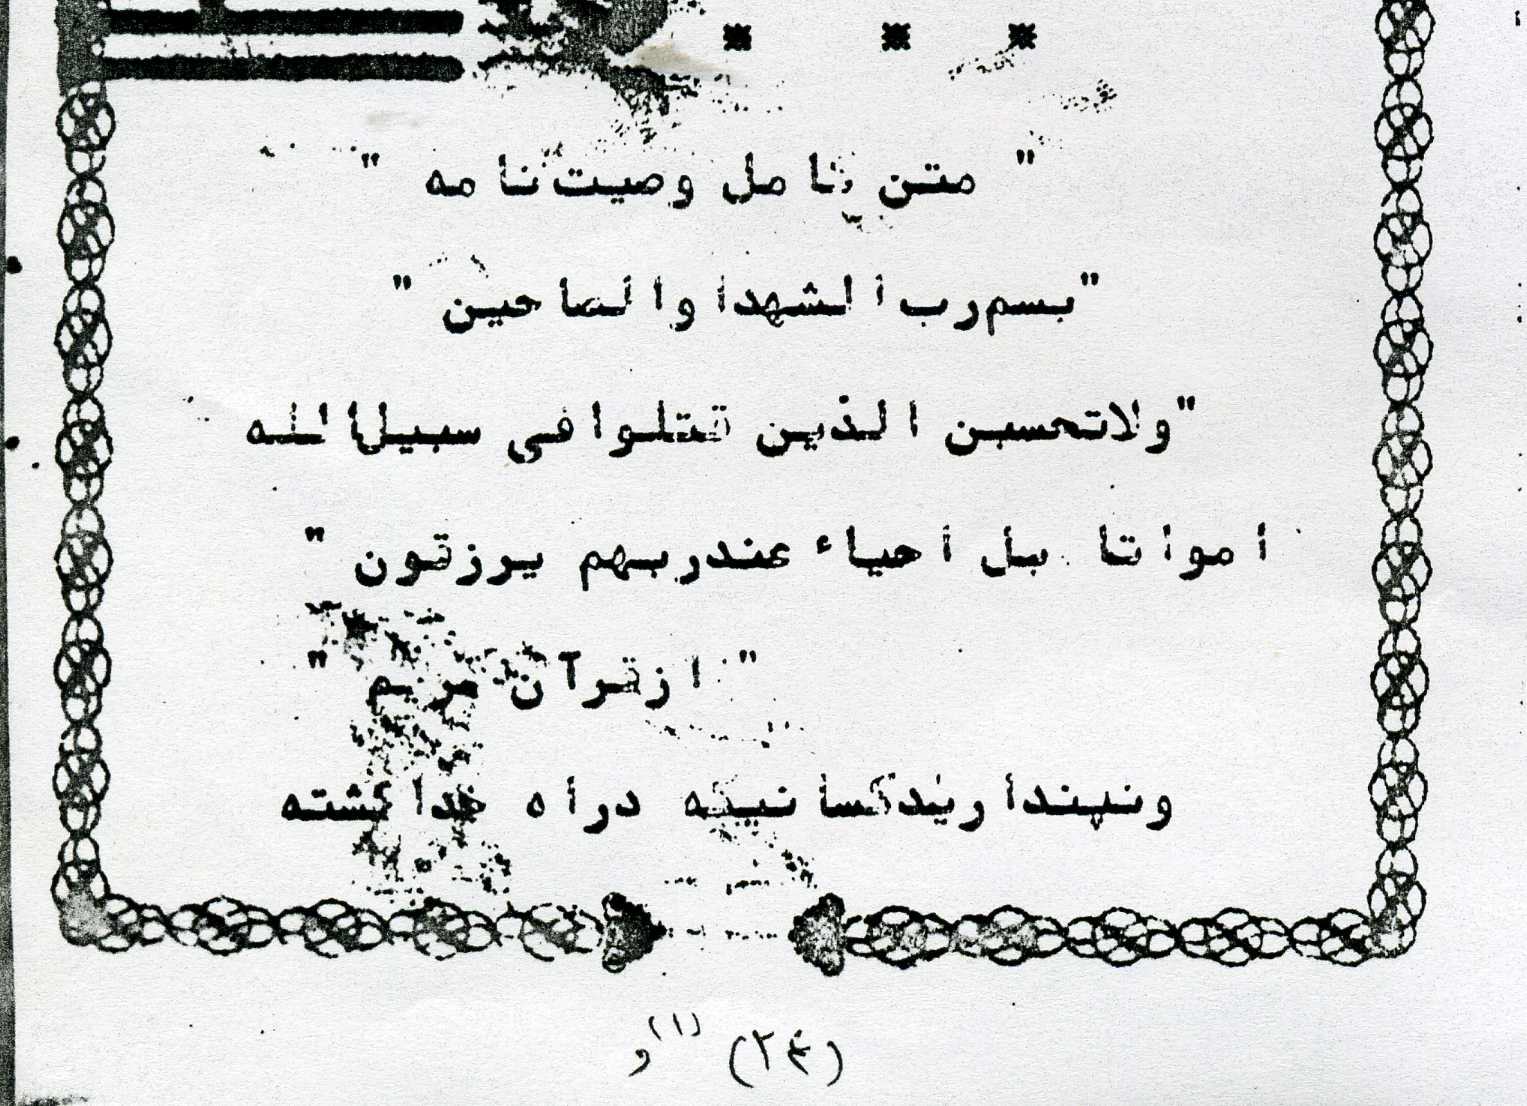 " متن کامل وصیت‌نامه "
"بسم‌رب الشهدا والصالحین "
"ولاتحسبن الذین قتلوا فی سبیل‌الله
امواتا بل احیاء عندربهم یرزقون "
" ازقرآن کریم "
ونپنداریدکسانیکه درراه خداکشته